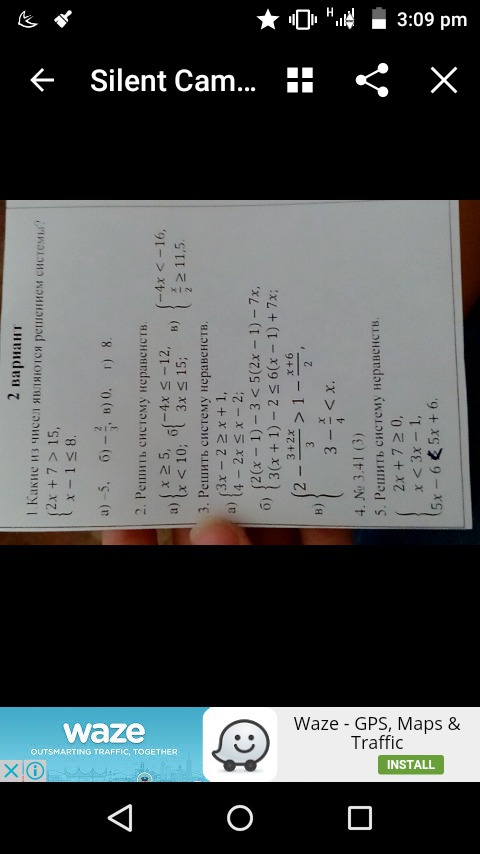 3:09 pm
Silent Cam...
2 вариант
1.Какие из чисел являются решением системы?
{2x + 7 > 15,
{x − 1 ≤ 8.
а) −5, б) −2/3, в) 0, г) 8.
2. Решить систему неравенств.
а) {x ≥ 5, {x < 10; б) {−4x ≤ −12, {3x ≤ 15; в) {−4x < −16, {x/2 ≥ 11,5.
3. Решить систему неравенств.
а) {3x − 2 ≥ x + 1,
{4 − 2x ≤ x − 2;
б) {2(x − 1) − 3 < 5(2x − 1) − 7x,
{3(x + 1) − 2 ≤ 6(x − 1) + 7x;
в) {2 − (3+2x)/3 > 1 − (x+6)/2,
{3 − x/4 < x.
4. № 3.41 (3)
5. Решить систему неравенств.
{2x + 7 ≥ 0,
x < 3x − 1,
5x − 6 < 5x + 6.
waze
OUTSMARTING TRAFFIC, TOGETHER
Waze - GPS, Maps &
Traffic
INSTALL